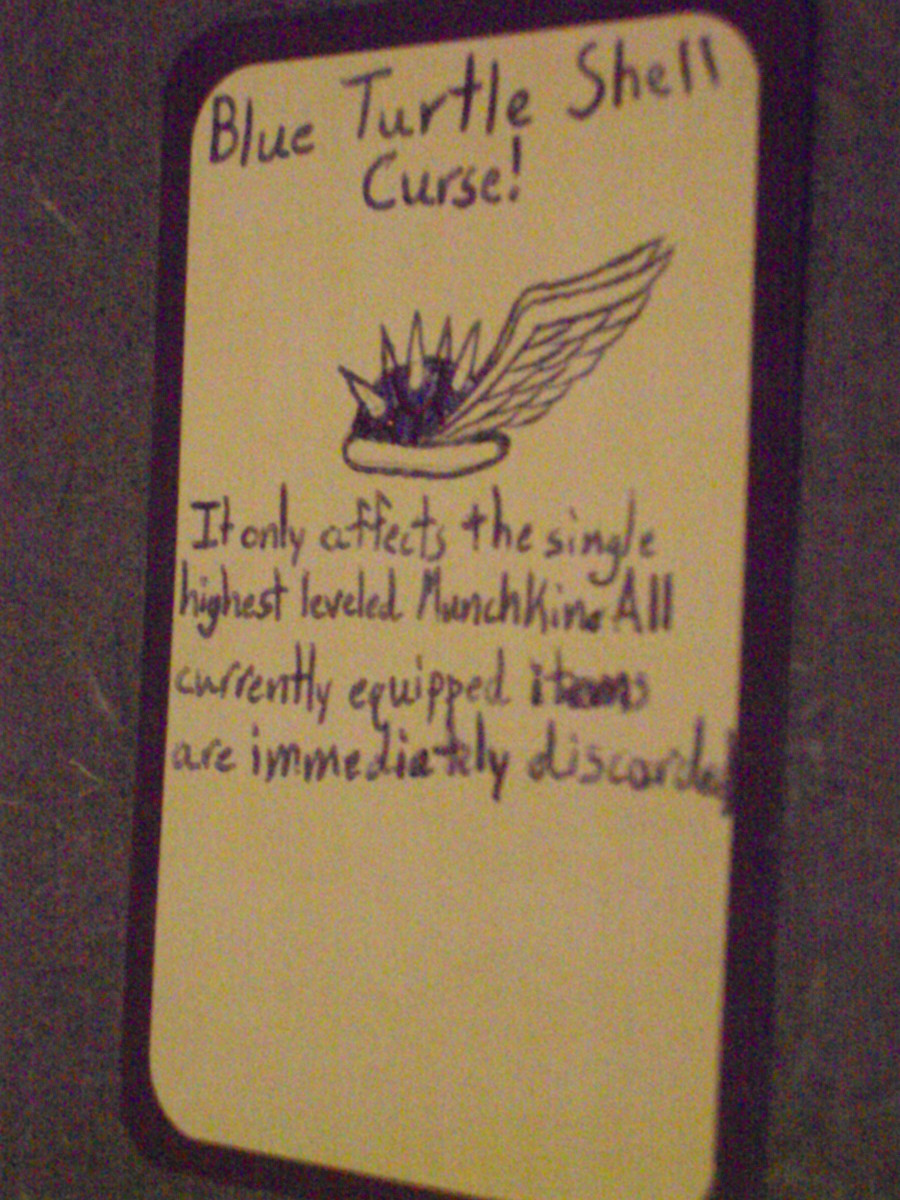 Blue Turtle Shell
Curse!
It only affects the single
highest leveled Munchkin. All
currently equipped items
are immediately discarded